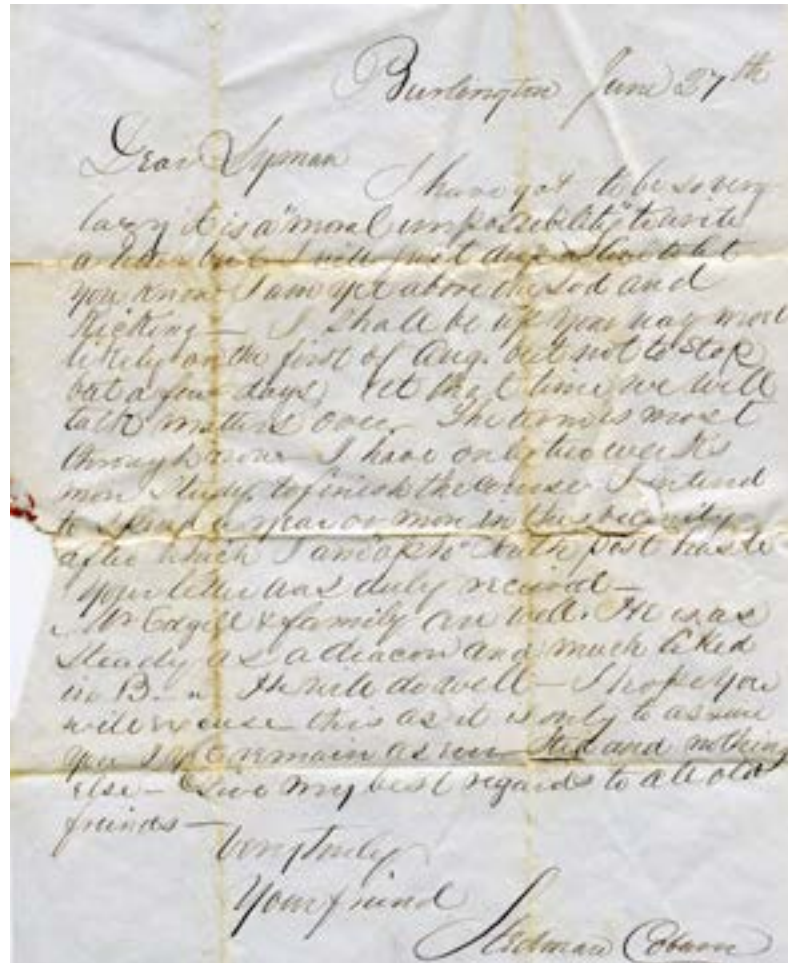 Burlington June 27th
Dear Lyman
I have got to be so very
lazy it is a "moral impossibility" to write
a letter but I will just drop a line to let
you know I am yet above the sod and
Kicking — I shall be up your way most
likely on the first of Aug. but not to stop
but a few days, at that time we will
talk matters over. The term is most
through now — I have only two weeks
more study to finish the course. I intend
to spend a year or more in this vicinity
after which I am off south post haste
Your letter was duly received —
Mr & family are well. He is as
steady as a deacon and much liked
in B. — He will do well — I hope you
will excuse this as it is only to assure
you I yet remain as ever Sted and nothing
else — Give my best regards to all old
friends —
Very truly
Your friend
Stedman Coburn